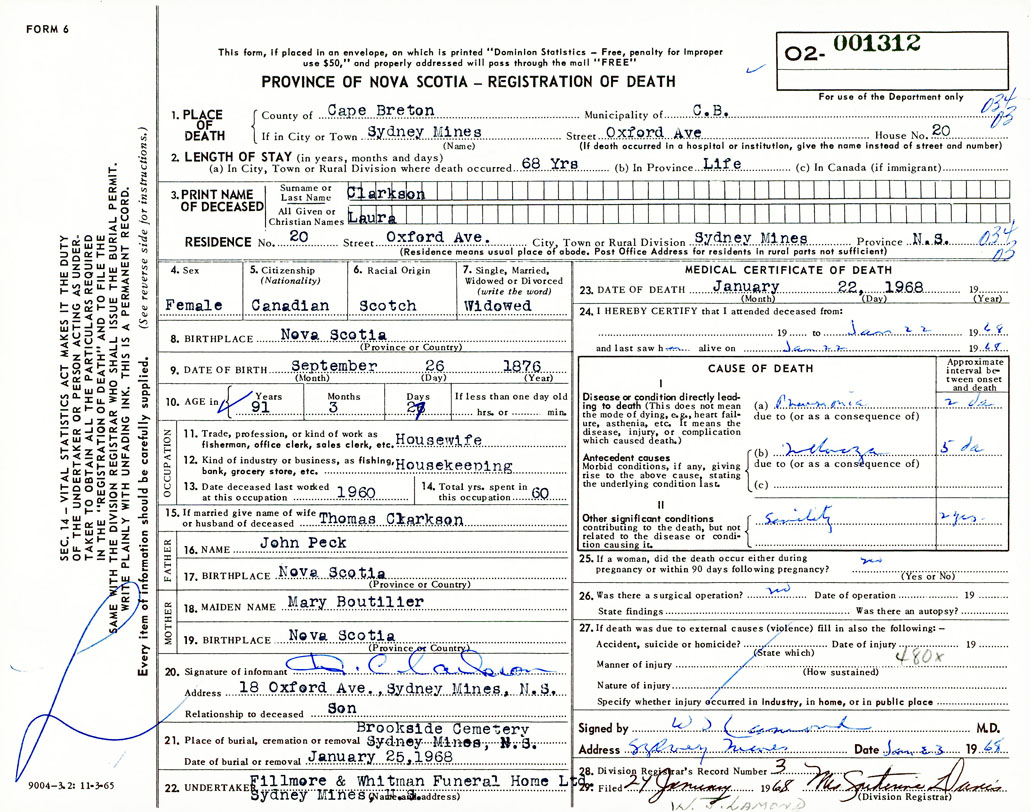 FORM 6
This form, if placed in an envelope, on which is printed "Dominion Statistics – Free, penalty for improper
use $50," and properly addressed will pass through the mail "FREE"
PROVINCE OF NOVA SCOTIA – REGISTRATION OF DEATH
O2- 001312
For use of the Department only
034
03
1. PLACE OF DEATH
County of Cape Breton Municipality of C.B.
If in City or Town Sydney Mines Street Oxford Ave House No. 20
(Name) (If death occurred in a hospital or institution, give the name instead of street and number)
2. LENGTH OF STAY (in years, months and days)
(a) In City, Town or Rural Division where death occurred 68 Yrs (b) In Province Life (c) In Canada (if immigrant)
3. PRINT NAME OF DECEASED
Surname or Last Name Clarkson
All Given or Christian Names Laura
RESIDENCE No. 20 Street Oxford Ave. City, Town or Rural Division Sydney Mines Province N.S.
(Residence means usual place of abode. Post Office Address for residents in rural parts not sufficient)
034
03
4. Sex
Female
5. Citizenship
(Nationality)
Canadian
6. Racial Origin
Scotch
7. Single, Married,
Widowed or Divorced
(write the word)
Widowed
8. BIRTHPLACE Nova Scotia
(Province or Country)
9. DATE OF BIRTH September 26 1876
(Month) (Day) (Year)
10. AGE in Years Months Days If less than one day old
91 3 hrs. or min.
OCCUPATION
11. Trade, profession, or kind of work as
fisherman, office clerk, sales clerk, etc. Housewife
12. Kind of industry or business, as fishing,
bank, grocery store, etc. Housekeeping
13. Date deceased last worked
at this occupation 1960
14. Total yrs. spent in
this occupation 60
15. If married give name of wife
or husband of deceased Thomas Clarkson
FATHER
16. NAME John Peck
17. BIRTHPLACE Nova Scotia
(Province or Country)
MOTHER
18. MAIDEN NAME Mary Boutilier
19. BIRTHPLACE Nova Scotia
(Province or Country)
20. Signature of informant Clarkson
Address 18 Oxford Ave., Sydney Mines, N.S.
Relationship to deceased Son
Brookside Cemetery
21. Place of burial, cremation or removal Sydney Mines, N.S.
Date of burial or removal January 25,1968
Fillmore & Whitman Funeral Home Ltd
22. UNDERTAKER Sydney Mines, N.S.
(Name and address)
MEDICAL CERTIFICATE OF DEATH
23. DATE OF DEATH January 22, 1968 19
(Month) (Day) (Year)
24. I HEREBY CERTIFY that I attended deceased from:
19 to Jan 22 1968
and last saw h alive on Jan 22 1968
CAUSE OF DEATH
Approximate
interval be-
tween onset
and death
I
Disease or condition directly lead-
ing to death (This does not mean
the mode of dying, e.g., heart fail-
ure, asthenia, etc. It means the
disease, injury, or complication
which caused death.)
(a) Pneumonia 2 da
due to (or as a consequence of)
Antecedent causes
Morbid conditions, if any, giving
rise to the above cause, stating
the underlying condition last.
(b) 5 da
due to (or as a consequence of)
(c)
II
Other significant conditions
contributing to the death, but not
related to the disease or condi-
tion causing it.
Senility 2 yrs.
25. If a woman, did the death occur either during
pregnancy or within 90 days following pregnancy? no
(Yes or No)
26. Was there a surgical operation? no Date of operation 19
State findings Was there an autopsy?
27. If death was due to external causes (violence) fill in also the following: –
Accident, suicide or homicide? Date of injury 19
(State which)
480x
Manner of injury
(How sustained)
Nature of injury
Specify whether injury occurred in Industry, in home, or in public place
Signed by W J Lamond M.D.
Address Sydney Mines Date Jan 23 1968
28. Division Registrar's Record Number 3
29. Filed 24 January 1968 Mrs Davis
(Division Registrar)
W. J. LAMOND
SEC. 14 – VITAL STATISTICS ACT MAKES IT THE DUTY
OF THE UNDERTAKER OR PERSON ACTING AS UNDER-
TAKER TO OBTAIN ALL THE PARTICULARS REQUIRED
IN THE "REGISTRATION OF DEATH" AND TO FILE THE
SAME WITH THE DIVISION REGISTRAR WHO SHALL ISSUE THE BURIAL PERMIT.
WRITE PLAINLY WITH UNFADING INK. THIS IS A PERMANENT RECORD.
Every item of information should be carefully supplied. (See reverse side for instructions.)
9004-3.2: 11-3-65